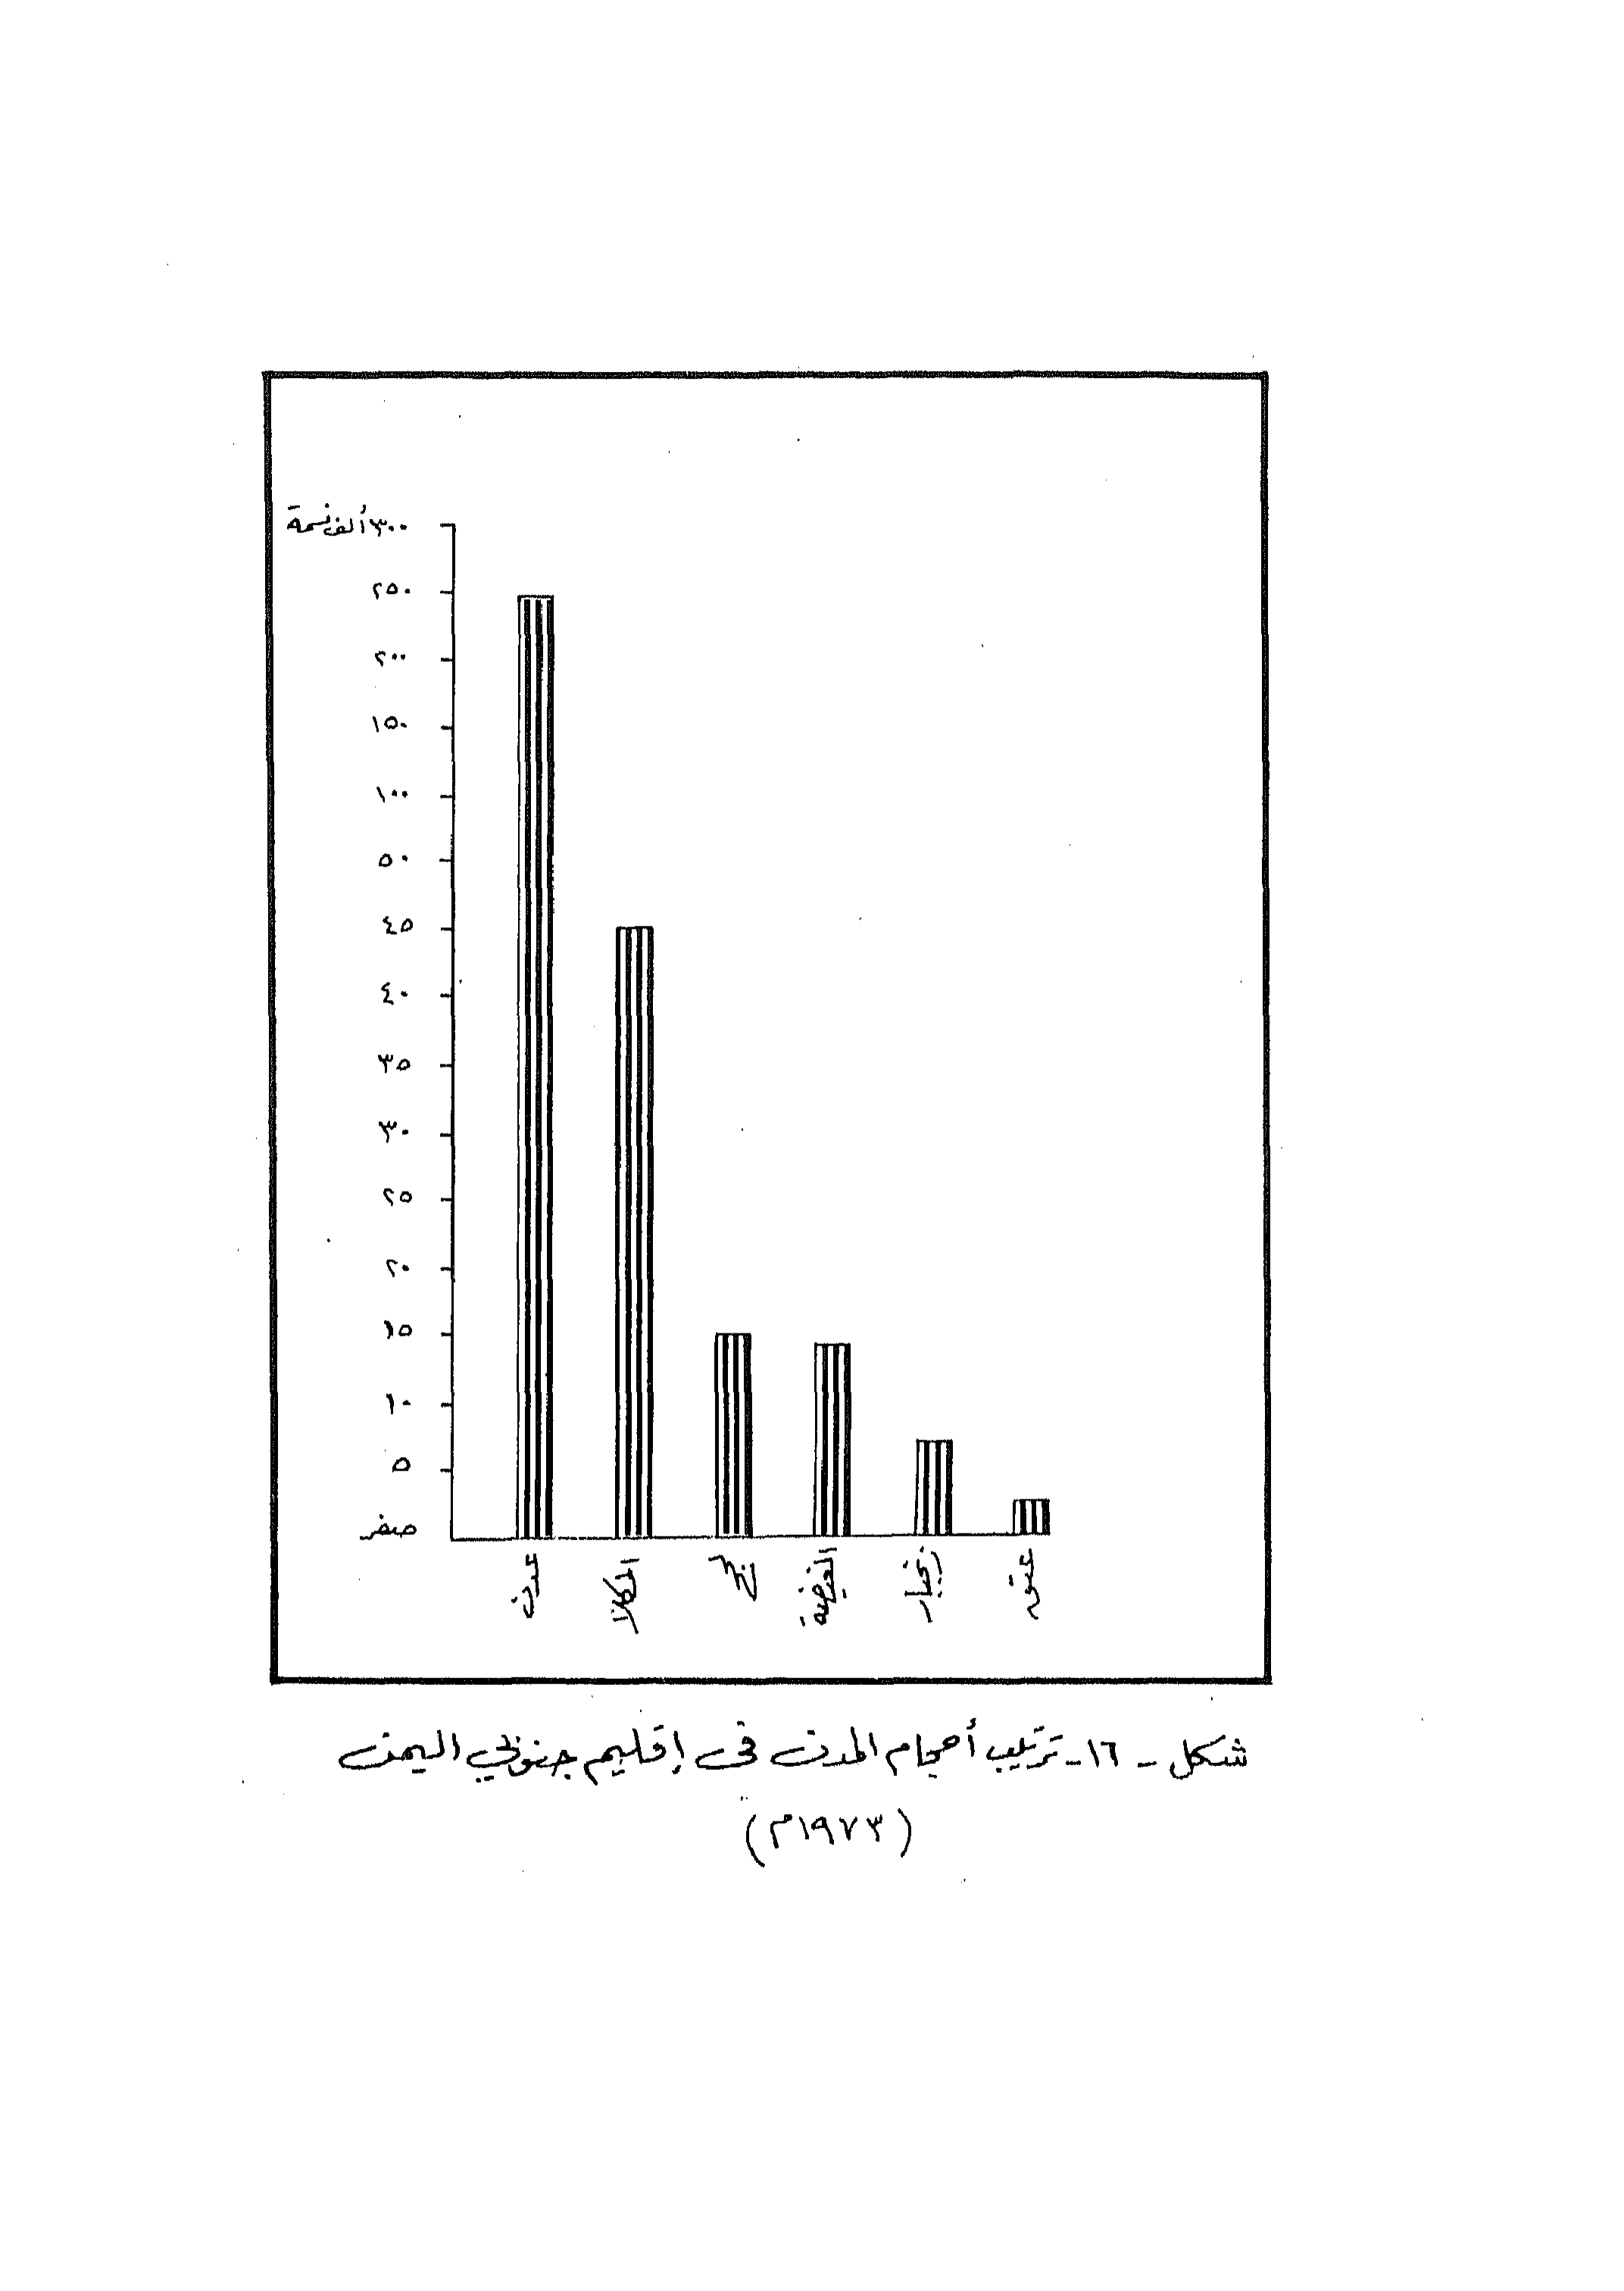 ٣٠٠ ألف نسمة
٢٥٠
٢٠٠
١٥٠
١٠٠
٥٠
٤٥
٤٠
٣٥
٣٠
٢٥
٢٠
١٥
١٠
٥
صفر
عدن
المكلا
لحج
الغيضة
زنجبار
عتق
شكل - ١٦ - ترتيب أحجام المدن فى إقليم جنوبي اليمن
(١٩٧٣م)